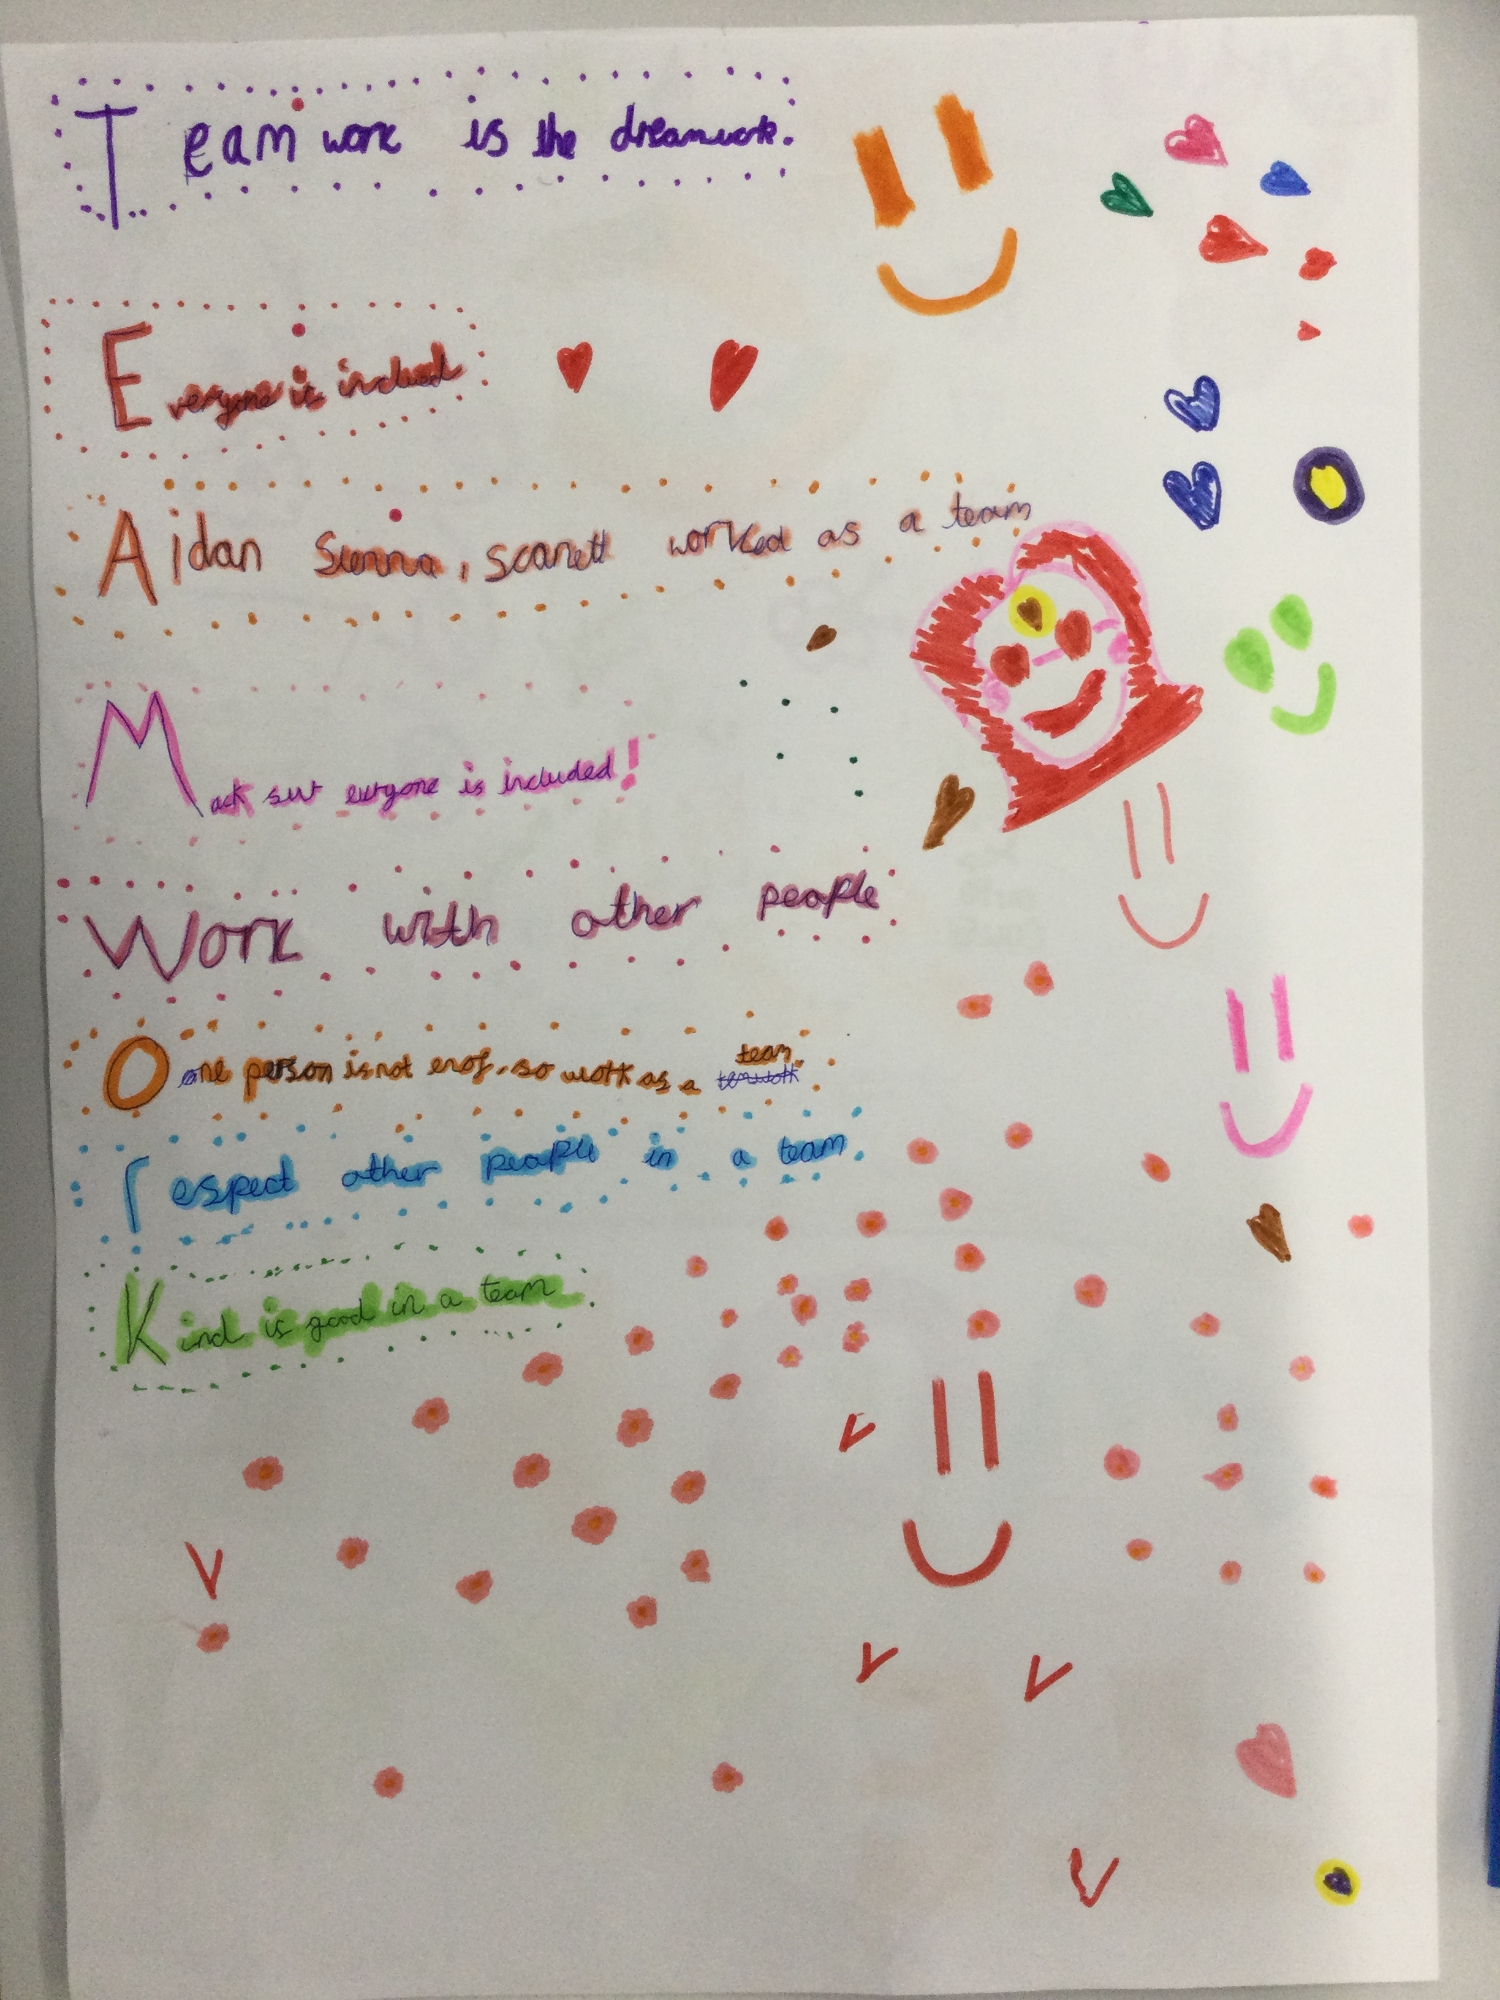 Team work is the dreamwork.
Everyone is inclued
Aidan Sienna, scarlett worked as a team
Mack sur euryone is included!
Work with other people
O one person is not enof, so work as a team.
respect other people in a team.
Kind is good in a team